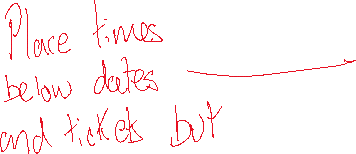 Place times
below dates
and tickets but